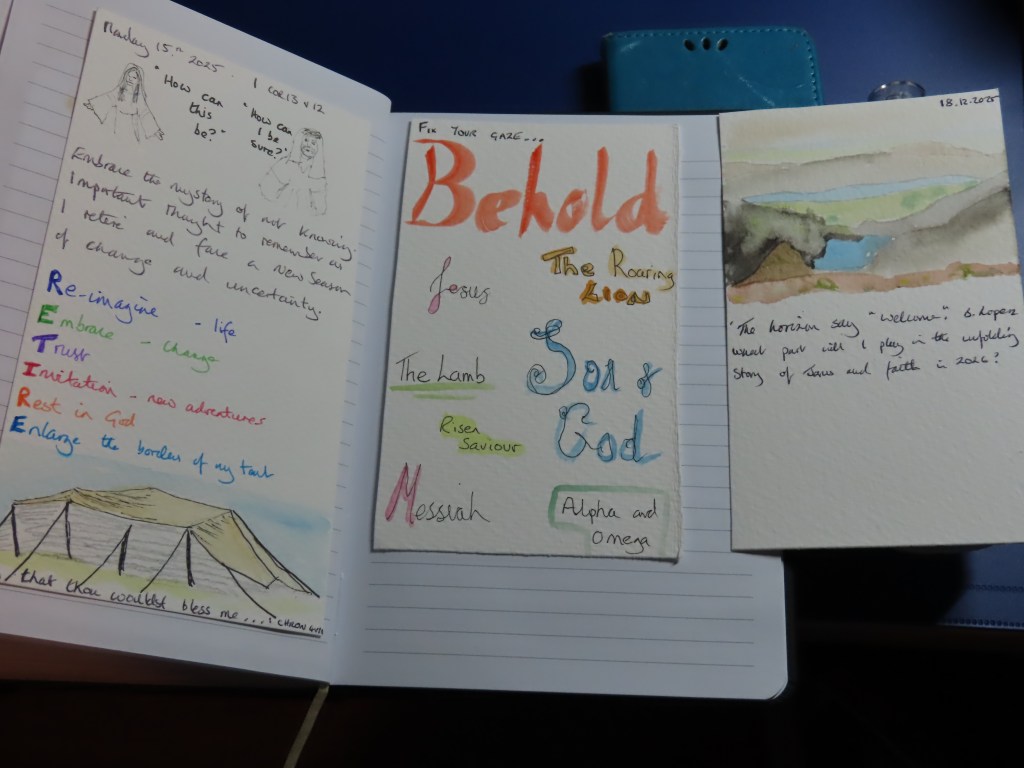 Monday 15th 2025. 1 COR 13 v 12
"How can this be?"
"How can I be sure?"
Embrace the mystery of not knowing.
Important thought to remember as
I retire and face a new season
of change and uncertainty.
Re-imagine - life
Embrace - change
Trust
Invitation - new adventures
Rest in God
Enlarge the borders of my tent
that thou wouldst bless me....!
FIX YOUR GAZE...
Behold
Jesus
The Roaring
LION
The Lamb
Son of
God
Risen
Saviour
Messiah
Alpha and
Omega
18.12.2025
"The horizon say "welcome". B. Lopez
what part will I play in the unfolding
story of Jesus and faith in 2026?